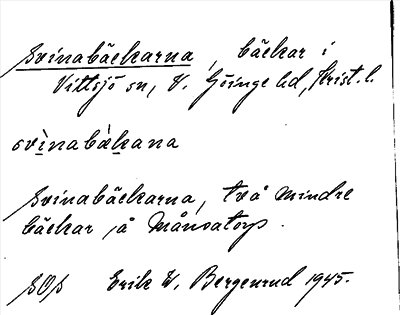 Svinabäckarna, bäckar i
Vittsjö sn, V. Göinge hd, Krist. l.
svìnabæ̀kana
Svinabäckarna, två mindre
bäckar å Månsatorp.
SOS Erik W. Bergenrud 1945.